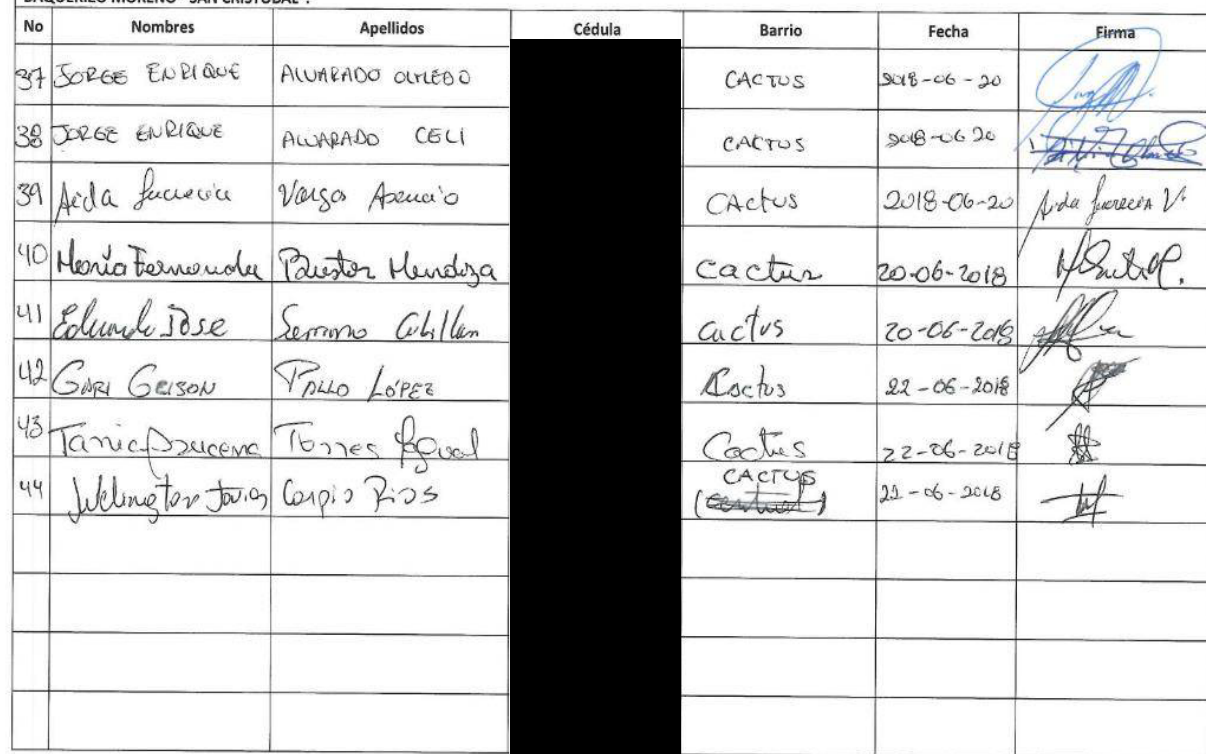 BAQUERIZO MORENO - SAN CRISTÓBAL".
No Nombres Apellidos Cédula Barrio Fecha Firma
37 JORGE ENRIQUE ALVARADO OLMEDO CACTUS 2018-06-20
38 JORGE ENRIQUE ALVARADO CELI CACTUS 2018-06 20
39 Aida Lucrecia Vargas Asencio CActus 2018-06-20 Aida Lucrecia V.
40 María Fernanda Bustos Mendoza cactus 20-06-2018
41 Eduardo Jose Serrano cactus 20-06-2018
42 GARI GEISON PALLO LÓPEZ Cactus 22-06-2018
43 Tania Azucena Torres Cactus 22-06-2018
44 Wellington Javier Carpio Rios CACTUS 22-06-2018
(central)